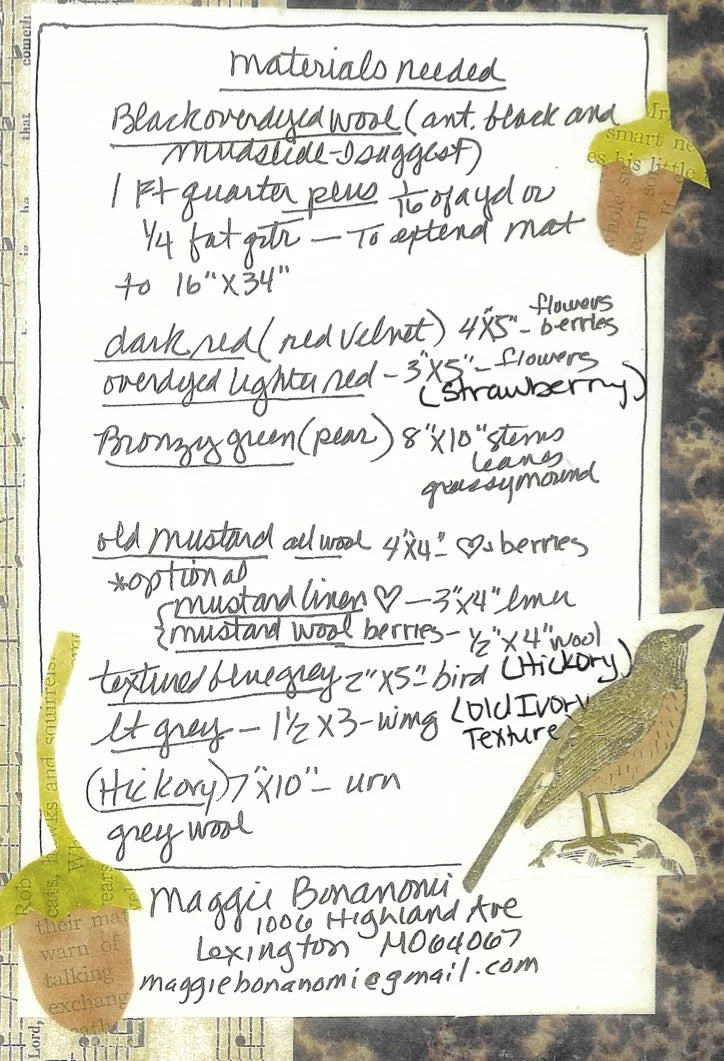 materials needed
Black overdyed wool (ant. black and
mudslide - I suggest)
1 Ft quarter plus 1/16 of a yd or
1/4 fat qtr — To extend mat
to 16" X 34"
dark red (red velvet) 4"X5" - flowers
berries
overdyed lighter red - 3"X5" - flowers
(strawberry)
Bronzy green (pear) 8"X10" stems
leaves
grassy mound
old mustard all wool 4"X4" - ♡ & berries
*optional
{mustard linen ♡ — 3"X4" linen
{mustard wool berries - 1/2" X 4" wool
textured blue grey 2"X5" - bird (Hickory)
lt grey - 1 1/2 X 3 - wing (Old Ivory
Texture)
(Hickory) 7"X10" - urn
grey wool
Maggie Bonanomi
1006 Highland Ave
Lexington MO 64067
maggiebonanomi@gmail.com
comet
that
is ha
Mr.
smart ne
es his little
whole
learn so
If a
cats, hawks and squirrels.
Rob
Wh
ears
their mat
warn of
talking
exchang
Lord,